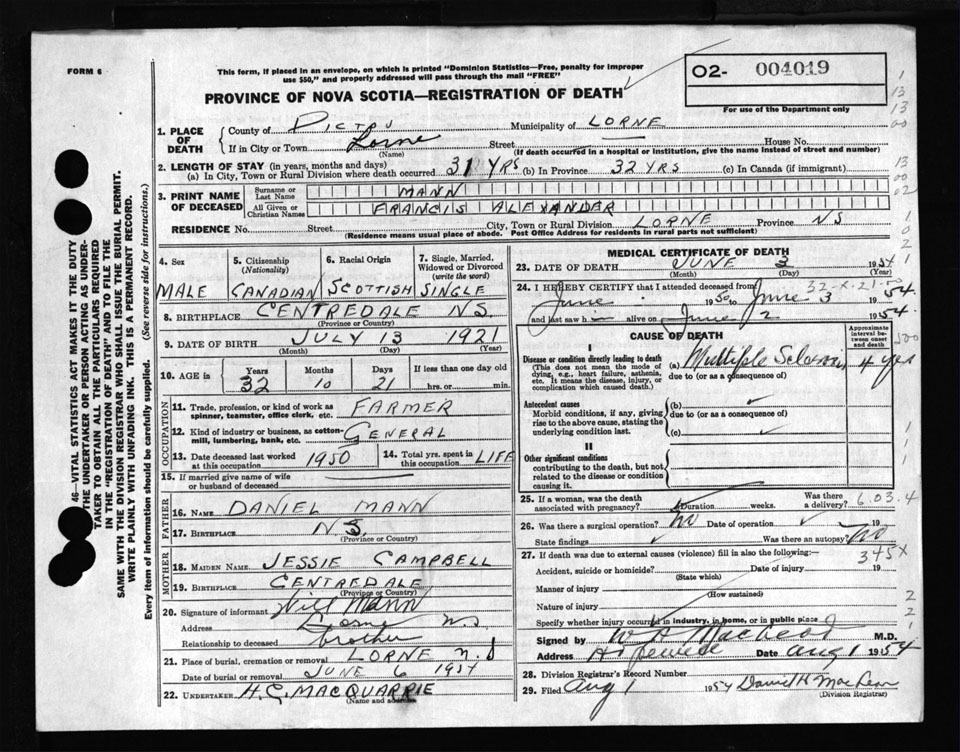 FORM 6
This form, if placed in an envelope, on which is printed "Dominion Statistics—Free, penalty for improper
use $50," and properly addressed will pass through the mail "FREE"
O2- 004019
For use of the Department only
PROVINCE OF NOVA SCOTIA—REGISTRATION OF DEATH
1. PLACE OF DEATH
County of PICTOU Municipality of LORNE
If in City or Town Lorne Street — House No.
(Name) (If death occurred in a hospital or institution, give the name instead of street and number)
2. LENGTH OF STAY (in years, months and days)
(a) In City, Town or Rural Division where death occurred 31 YRS (b) In Province 32 YRS (c) In Canada (if immigrant)
3. PRINT NAME OF DECEASED
Surname or Last Name MANN
All Given or Christian Names FRANCIS ALEXANDER
RESIDENCE No. Street City, Town or Rural Division LORNE Province NS
(Residence means usual place of abode. Post Office Address for residents in rural parts not sufficient)
4. Sex MALE
5. Citizenship (Nationality) CANADIAN
6. Racial Origin SCOTTISH
7. Single, Married, Widowed or Divorced (write the word) SINGLE
8. BIRTHPLACE CENTREDALE N.S.
(Province or Country)
9. DATE OF BIRTH JULY 13 1921
(Month) (Day) (Year)
10. AGE in Years 32 Months 10 Days 21 If less than one day old hrs. or min.
OCCUPATION
11. Trade, profession, or kind of work as spinner, teamster, office clerk, etc. FARMER
12. Kind of industry or business, as cotton-mill, lumbering, bank, etc. GENERAL
13. Date deceased last worked at this occupation 1950
14. Total yrs. spent in this occupation LIFE
15. If married give name of wife or husband of deceased
FATHER
16. NAME DANIEL MANN
17. BIRTHPLACE N.S.
(Province or Country)
MOTHER
18. MAIDEN NAME JESSIE CAMPBELL
19. BIRTHPLACE CENTREDALE
(Province or Country)
20. Signature of informant Will Mann
Address Lorne N.S
Relationship to deceased brother
21. Place of burial, cremation or removal LORNE N.S
Date of burial or removal JUNE 6 1954
22. UNDERTAKER H.C. MACQUARRIE
(Name and address)
MEDICAL CERTIFICATE OF DEATH
23. DATE OF DEATH JUNE 3 1954
(Month) (Day) (Year)
32-x-21
24. I HEREBY CERTIFY that I attended deceased from
June 1950 to June 3 1954
and last saw h alive on June 2 1954
CAUSE OF DEATH
Approximate interval between onset and death
I
Disease or condition directly leading to death
(This does not mean the mode of dying, e.g., heart failure, asthenia, etc. It means the disease, injury, or complication which caused death.)
(a) Multiple Sclerosis 4 yrs
due to (or as a consequence of)
Antecedent causes
Morbid conditions, if any, giving rise to the above cause, stating the underlying condition last.
(b)
due to (or as a consequence of)
(c)
II
Other significant conditions
contributing to the death, but not related to the disease or condition causing it.
25. If a woman, was the death associated with pregnancy? Duration weeks. Was there a delivery? 6.03.4
26. Was there a surgical operation? no Date of operation 19
State findings Was there an autopsy? no
27. If death was due to external causes (violence) fill in also the following:— 345x
Accident, suicide or homicide? Date of injury 19
(State which)
Manner of injury
(How sustained)
Nature of injury
Specify whether injury occurred in industry, in home, or in public place
Signed by MacLeod M.D.
Address Hopewell Date Aug 1 1954
28. Division Registrar's Record Number
29. Filed Aug 1 1954 Daniel H MacLean
(Division Registrar)
46—VITAL STATISTICS ACT MAKES IT THE DUTY
THE UNDERTAKER OR PERSON ACTING AS UNDER-
TAKER TO OBTAIN ALL THE PARTICULARS REQUIRED
IN THE "REGISTRATION OF DEATH" AND TO FILE THE
SAME WITH THE DIVISION REGISTRAR WHO SHALL ISSUE THE BURIAL PERMIT.
WRITE PLAINLY WITH UNFADING INK. THIS IS A PERMANENT RECORD.
Every item of information should be carefully supplied. (See reverse side for instructions.)